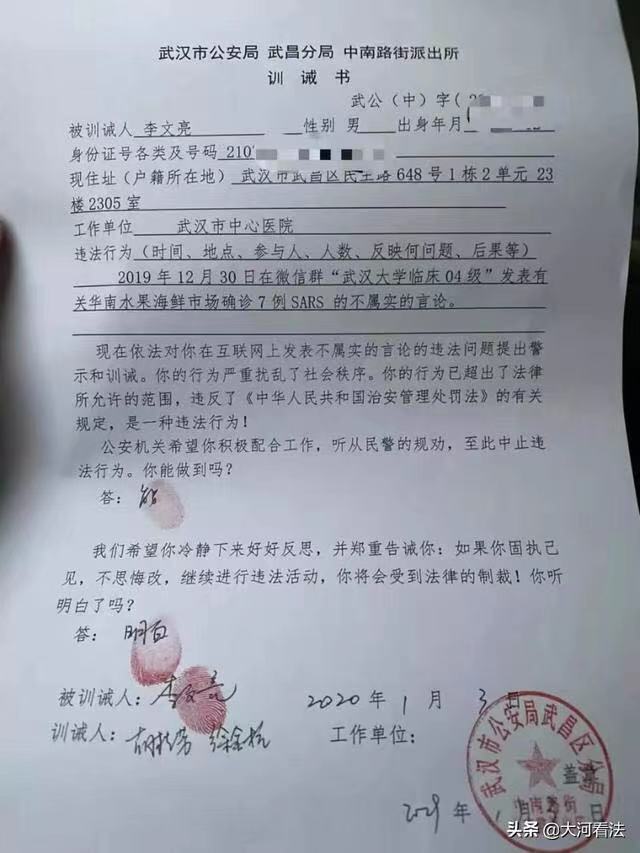 武汉市公安局 武昌分局 中南路街派出所
训 诫 书
武公（中）字（
被训诫人 李文亮 性别 男 出身年月
身份证号各类及号码 210
现住址（户籍所在地） 武汉市武昌区民主路 648 号 1 栋 2 单元 23
楼 2305 室
工作单位 武汉市中心医院
违法行为（时间、地点、参与人、人数、反映何问题、后果等）
2019 年 12 月 30 日在微信群“武汉大学临床 04 级”发表有
关华南水果海鲜市场确诊 7 例 SARS 的不属实的言论。
现在依法对你在互联网上发表不属实的言论的违法问题提出警
示和训诫。你的行为严重扰乱了社会秩序。你的行为已超出了法律
所允许的范围，违反了《中华人民共和国治安管理处罚法》的有关
规定，是一种违法行为！
公安机关希望你积极配合工作，听从民警的规劝，至此中止违
法行为。你能做到吗？
答： 能
我们希望你冷静下来好好反思，并郑重告诫你：如果你固执己
见，不思悔改，继续进行违法活动，你将会受到法律的制裁！你听
明白了吗？
答： 明白
被训诫人： 李文亮 2020 年 1 月 3 日
训诫人： 工作单位：
武汉市公安局武昌区分局
盖章
中南路街
年 1 月 3 日
头条 @大河看法